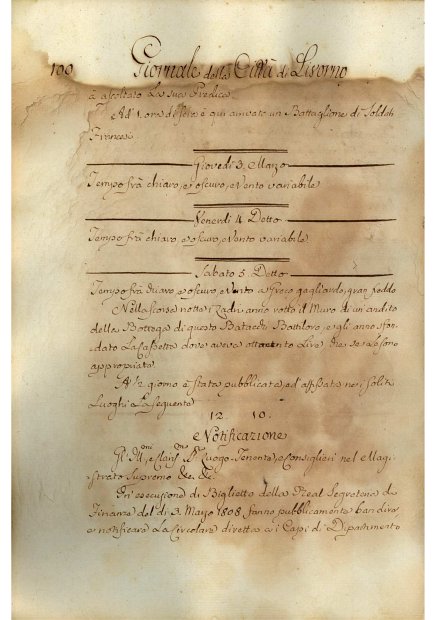 100 Giornale della Città di Livorno
à ascoltato La sua Predica.
Ad' 1. ora di sera è qui arrivato un Battaglione di Soldati
Francesi
Giovedì 3. Marzo
Tempo frà chiaro, e oscuro, e Vento variabile
Venerdì 4. Detto
Tempo frà chiaro, e oscuro, e Vento variabile
Sabato 5. Detto
Tempo frà chiaro, e oscuro e Vento a Greco gagliardo, gran freddo
Nella scorsa notte i Ladri anno rotto il Muro di un andito
della Bottega di questo Batacchi Battiloro, e gli anno sfon-
dato La Cassetta dove aveva ottocento Lire che se le sono
appropriate
A ½ giorno è stata pubblicata, ed affissata nei soliti
Luoghi La seguente
12. 10.
Notificazione
Gl' Ill.mi, e Clar.mi SS.ri Luogo-Tenente, e Consiglieri nel Magi-
strato Supremo &c. &c.
In' esecuzione di Biglietto della Real Segreteria di
Finanze del dì 3. Marzo 1808. fanno pubblicamente bandire,
e notificare La Circolare diretta ai Capi di Dipartimento